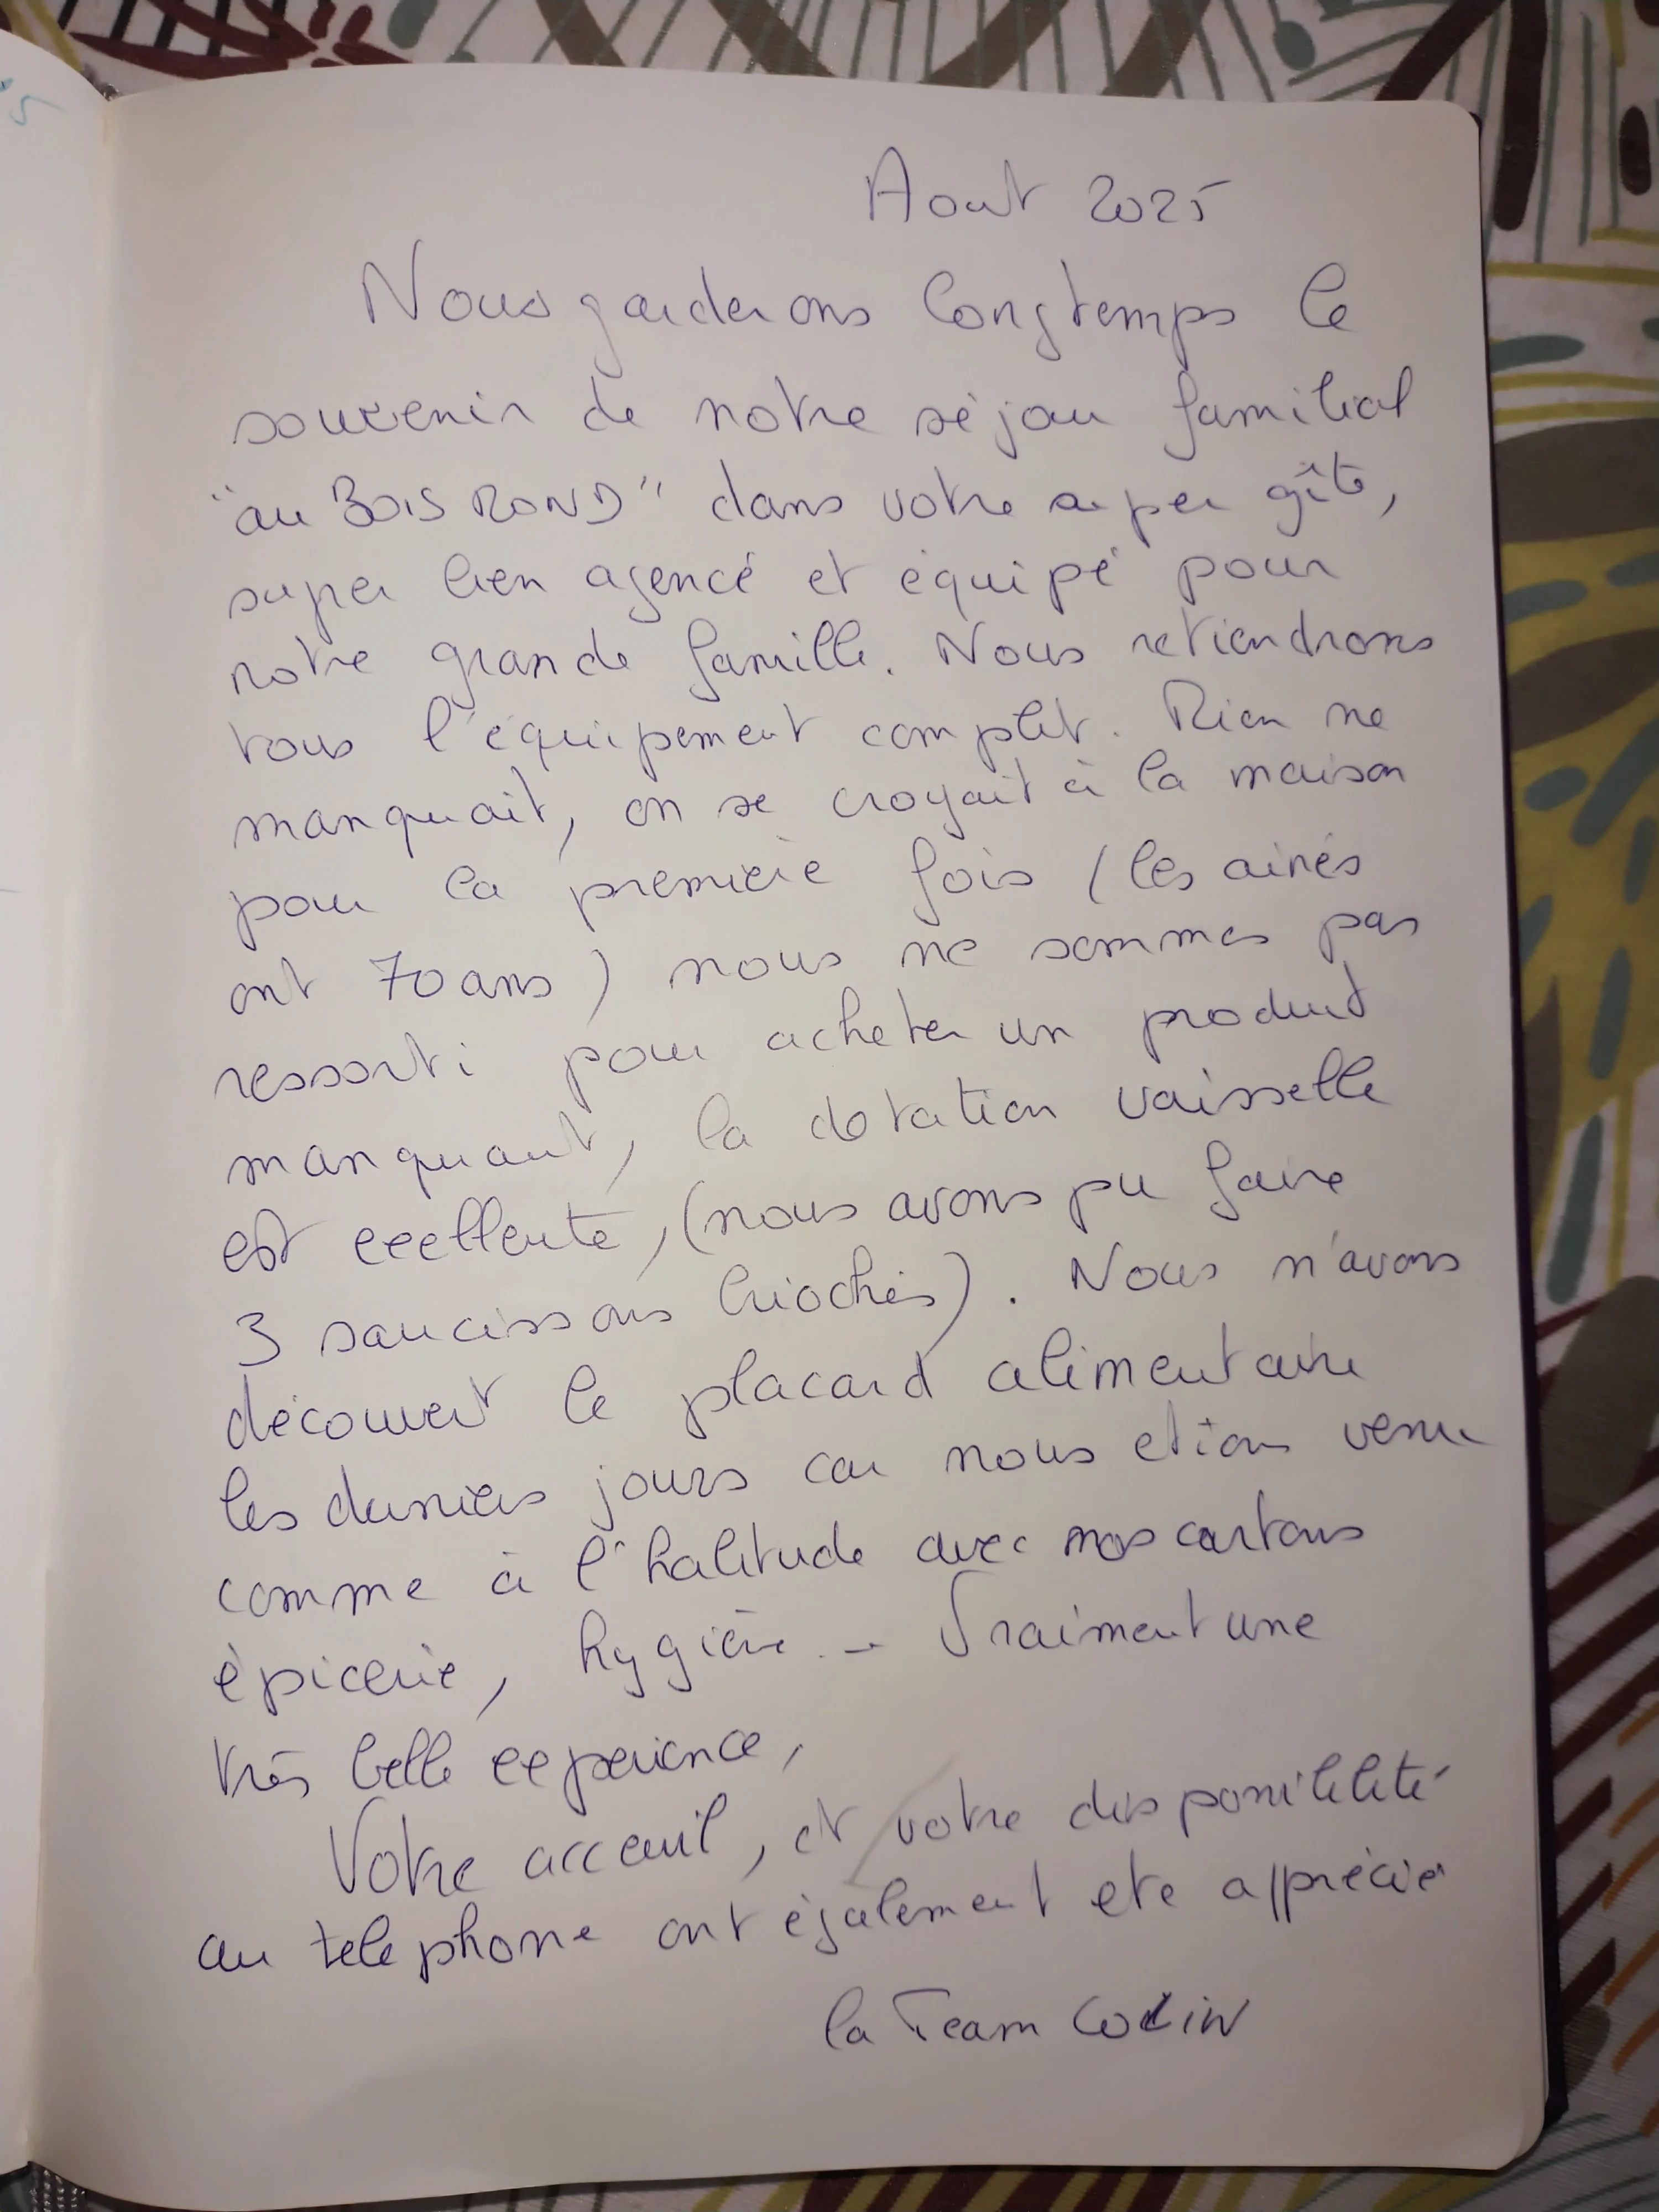 Aout 2025
Nous garderons longtemps le
souvenir de notre séjour familial
"au BOIS ROND" dans votre super gîte,
super bien agencé et équipé pour
notre grande famille. Nous retiendrons
tous l'équipement complet. Rien ne
manquait, on se croyait à la maison
pour la première fois (les ainés
ont 70 ans) nous ne sommes pas
ressorti pour acheter un produit
manquant, la dotation vaisselle
est excellente, (nous avons pu faire
3 saucissons briochés). Nous n'avons
découvert le placard alimentaire
les derniers jours car nous etions venu
comme à l'habitude avec nos cartons
épicerie, hygiène... Vraiment une
très belle experience,
Votre acceuil, et votre disponibilité
au telephone ont également ete apprécié
la Team COLIN